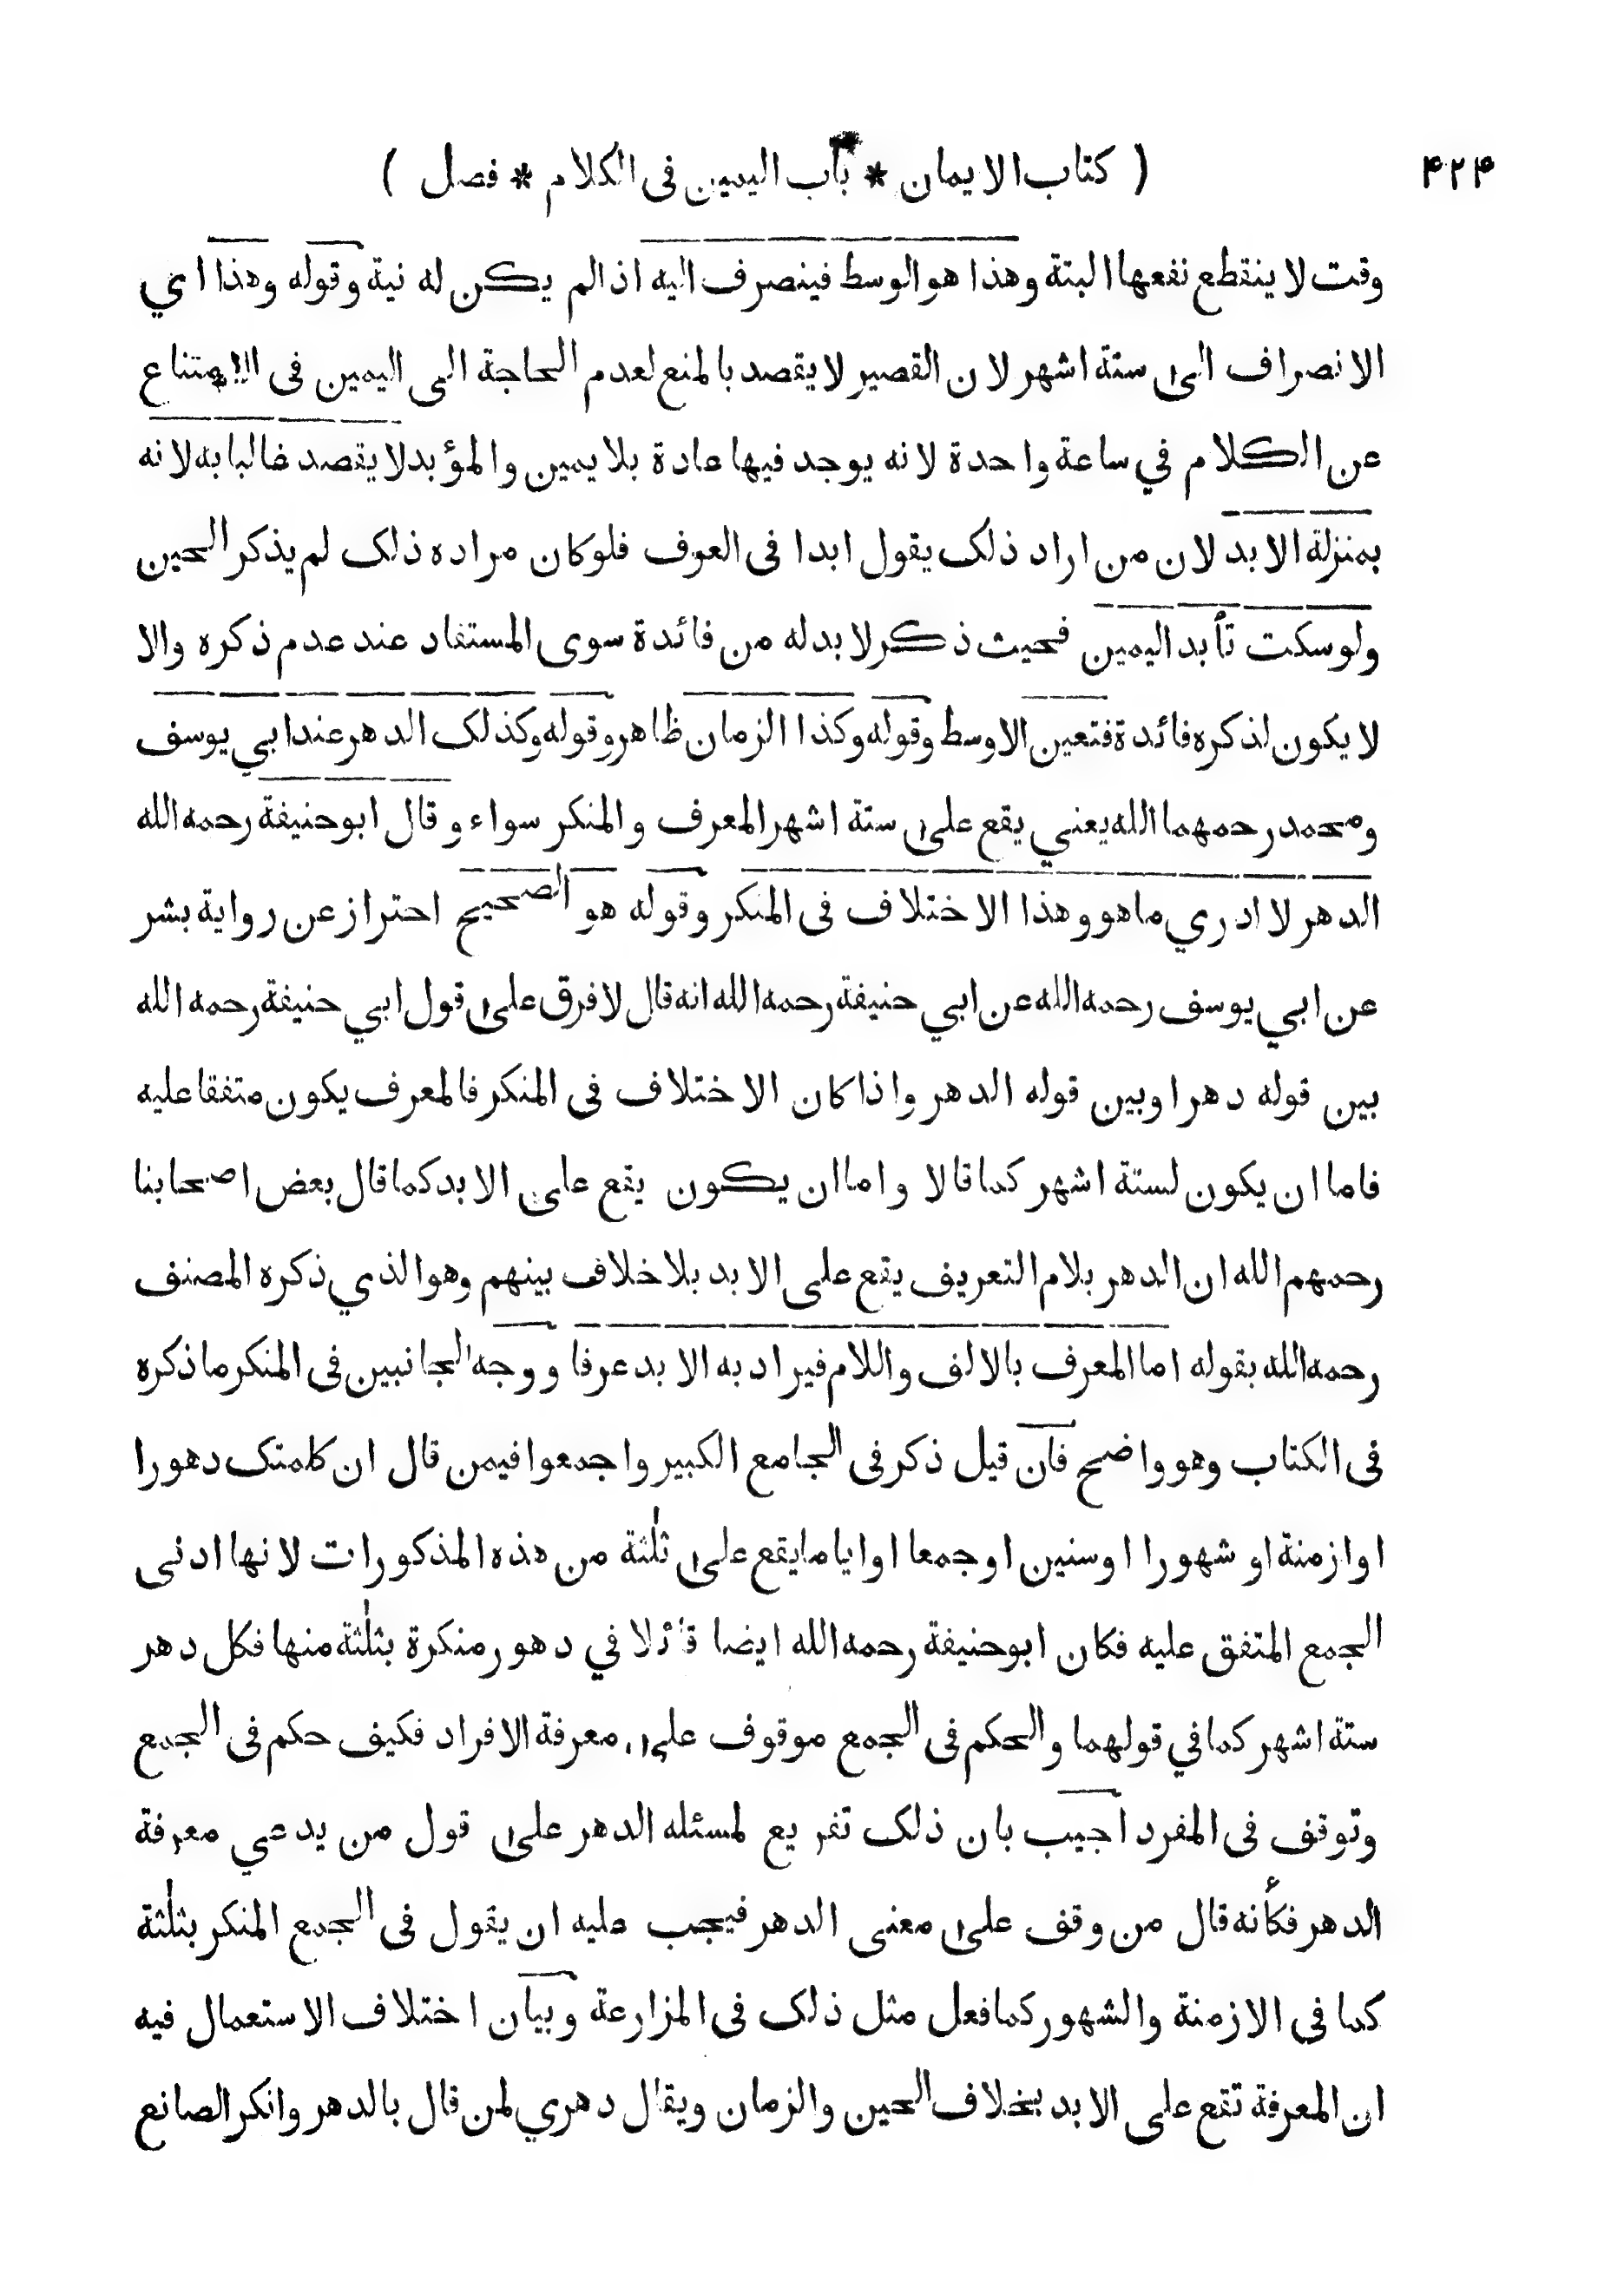 ۴۲۴ ( كتاب الايمان * باب اليمين فى الكلام * فصل )
وقت لا ينقطع نفعها البتة وهذا هو الوسط فينصرف اليه اذا لم يكن له نية وقوله وهذا اي
الانصراف الى ستة اشهر لان القصير لا يقصد بالمنع لعدم الحاجة الى اليمين فى الامتناع
عن الكلام في ساعة واحدة لانه يوجد فيها عادة بلا يمين والمؤبد لا يقصد غالبا به لانه
بمنزلة الابد لان من اراد ذلك يقول ابدا فى العرف فلو كان مراده ذلك لم يذكر الحين
ولو سكت تأبد اليمين فحيث ذكر لا بد له من فائدة سوى المستفاد عند عدم ذكره والا
لا يكون لذكره فائدة فتعين الاوسط وقوله وكذا الزمان ظاهر وقوله وكذلك الدهر عند ابي يوسف
ومحمد رحمهما الله يعني يقع على ستة اشهر المعرف والمنكر سواء وقال ابو حنيفة رحمه الله
الدهر لا ادري ما هو وهذا الاختلاف فى المنكر وقوله هو الصحيح احتراز عن رواية بشر
عن ابي يوسف رحمه الله عن ابي حنيفة رحمه الله انه قال لا فرق على قول ابي حنيفة رحمه الله
بين قوله دهرا وبين قوله الدهر واذا كان الاختلاف فى المنكر فالمعرف يكون متفقا عليه
فاما ان يكون لستة اشهر كما قالا واما ان يكون يقع على الابد كما قال بعض اصحابنا
رحمهم الله ان الدهر بلام التعريف يقع على الابد بلا خلاف بينهم وهو الذي ذكره المصنف
رحمه الله بقوله اما المعرف بالالف واللام فيراد به الابد عرفا ووجه الجانبين فى المنكر ما ذكره
فى الكتاب وهو واضح فان قيل ذكر فى الجامع الكبير واجمعوا فيمن قال ان كلمتك دهورا
او ازمنة او شهورا او سنين او جمعا او اياما يقع على ثلثة من هذه المذكورات لانها ادنى
الجمع المتفق عليه فكان ابو حنيفة رحمه الله ايضا قائلا في دهور منكرة بثلثة منها فكل دهر
ستة اشهر كما في قولهما والحكم فى الجمع موقوف على معرفة الافراد فكيف حكم فى الجمع
وتوقف فى المفرد اجيب بان ذلك تفريع لمسئله الدهر على قول من يدعي معرفة
الدهر فكأنه قال من وقف على معنى الدهر فيجب عليه ان يقول فى الجمع المنكر بثلثة
كما فى الازمنة والشهور كما فعل مثل ذلك فى المزارعة وبيان اختلاف الاستعمال فيه
ان المعرفة تقع على الابد بخلاف الحين والزمان ويقال دهري لمن قال بالدهر وانكر الصانع